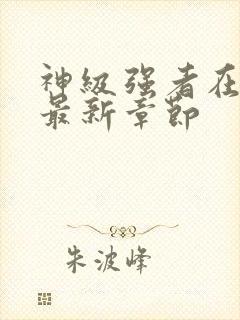 神级强者在
最新章节
朱波峰